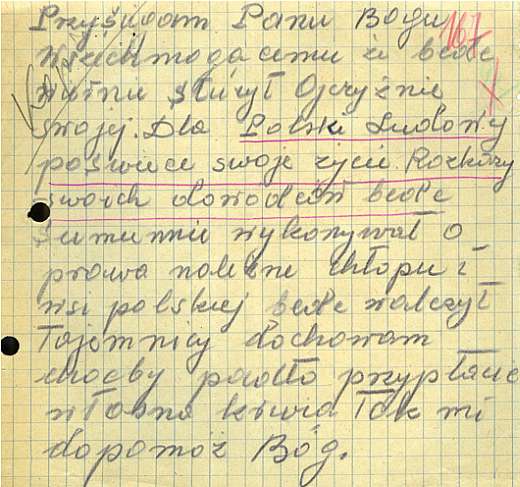 Przyśięgam Panu Bogu 167
Wszechmogącemu że bede
wiernie służył Ojczyźnie
swojej. Dla Polski Ludowy
poświece swoje życie. Rozkazy
swoich dowódców bede
sumiennie wykonywał o
prawa należne chłopu i
wsi polskiej bede walczył
Tajemnicy dochowam
choćby przypłacić
własną krwią Tak mi
dopomóż Bóg.